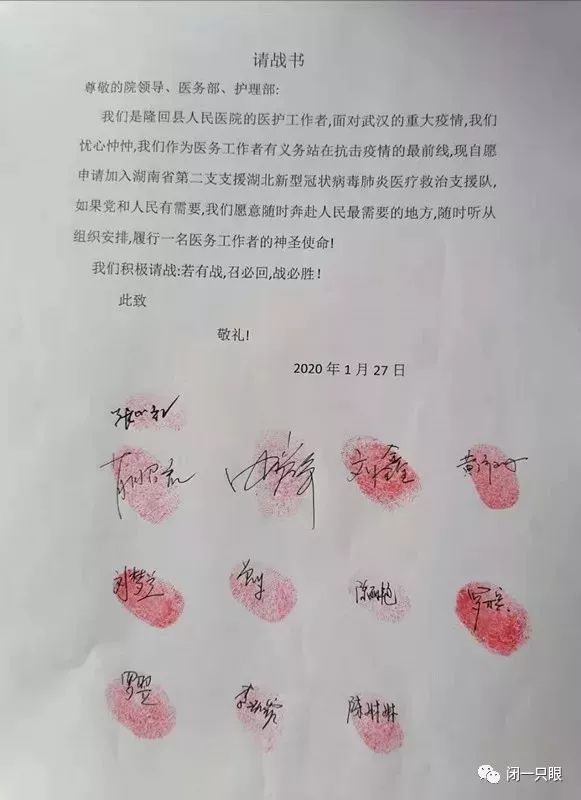 请战书
尊敬的院领导、医务部、护理部:
我们是隆回县人民医院的医护工作者,面对武汉的重大疫情,我们
忧心忡忡,我们作为医务工作者有义务站在抗击疫情的最前线,现自愿
申请加入湖南省第二支支援湖北新型冠状病毒肺炎医疗救治支援队,
如果党和人民有需要,我们愿意随时奔赴人民最需要的地方,随时听从
组织安排,履行一名医务工作者的神圣使命!
我们积极请战:若有战,召必回,战必胜！
此致
敬礼!
2020 年 1 月 27 日
刘鑫
黄
刘梦兰
陈
罗
罗翌
李
陈琳琳
闭一只眼